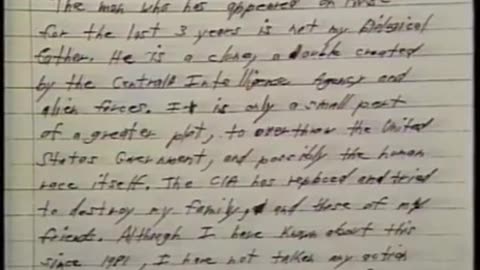 The man who has appeared on KNBC
for the last 3 years is not my biological
father. He is a clone, a double created
by the Central Intelligence Agency and
alien forces. It is only a small part
of a greater plot, to overthrow the United
States Government, and possibly the human
race itself. The CIA has replaced and tried
to destroy my family, and those of my
friends. Although I have known about this
since 1981, I have not taken any action